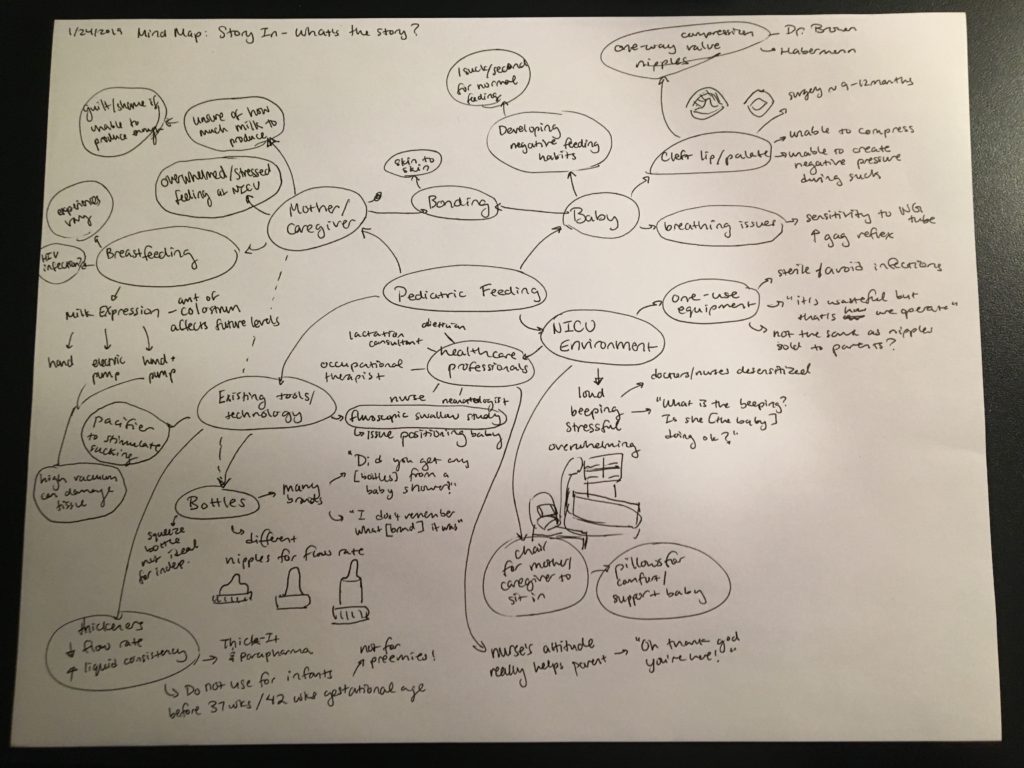 1/24/2019 Mind Map: Story In - What's the story?
compression
one-way valve
nipples
Dr. Brown
Habermann
1 suck/second
for normal
feeding
guilt/shame if
unable to
produce enough
unsure of how
much milk to
produce
surgery ~ 9-12 months
Developing
negative feeding
habits
cleft lip/palate
unable to compress
unable to create
negative pressure
during suck
skin to
skin
overwhelmed/stressed
feeling at NICU
Mother/
caregiver
Bonding
Baby
experiences
vary
breathing issues
sensitivity to NG
tube
↑ gag reflex
HIV
infection?
Breastfeeding
Pediatric Feeding
sterile & avoid infections
one-use
equipment
"it's wasteful but
that's how we operate"
not the same as nipples
sold to parents?
Milk Expression
amt of
colostrum
affects future levels
NICU
Environment
lactation
consultant
dietician
healthcare
professionals
occupational
therapist
nurse
neonatologist
hand
electric
pump
hand +
pump
Existing tools/
technology
fluroscopic swallow study
↳ issue positioning baby
loud
beeping
stressful
overwhelming
doctors/nurses desensitized
"What is the beeping?
Is she [the baby]
doing ok?"
pacifier
to stimulate
sucking
high vacuum
can damage
tissue
Bottles
many
brands
"Did you get any
[bottles] from a
baby shower?"
"I don't remember
what [brand] it was"
squeeze
bottle
not ideal
for indep.
different
nipples for flow rate
chair
for mother/
caregiver to
sit in
pillows for
comfort/
support baby
thickeners
↓ flow rate
↑ liquid consistency
Thick-It
& Parapharma
not for
preemies!
↳ Do not use for infants
before 37 wks / 42 wks gestational age
nurse's attitude
really helps parent
"Oh thank god
you're here!"